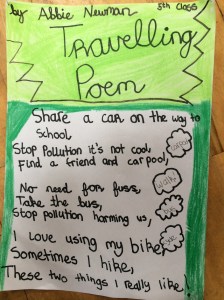 by Abbie Newman 5th Class
Travelling
Poem
Share a car on the way to
School
Stop Pollution it's not cool,
Find a friend and car pool,
No need for fuss,
WALK
Take the bus,
Stop pollution harming us,
Love using my bike,
Sometimes I hike,
These two things I really like